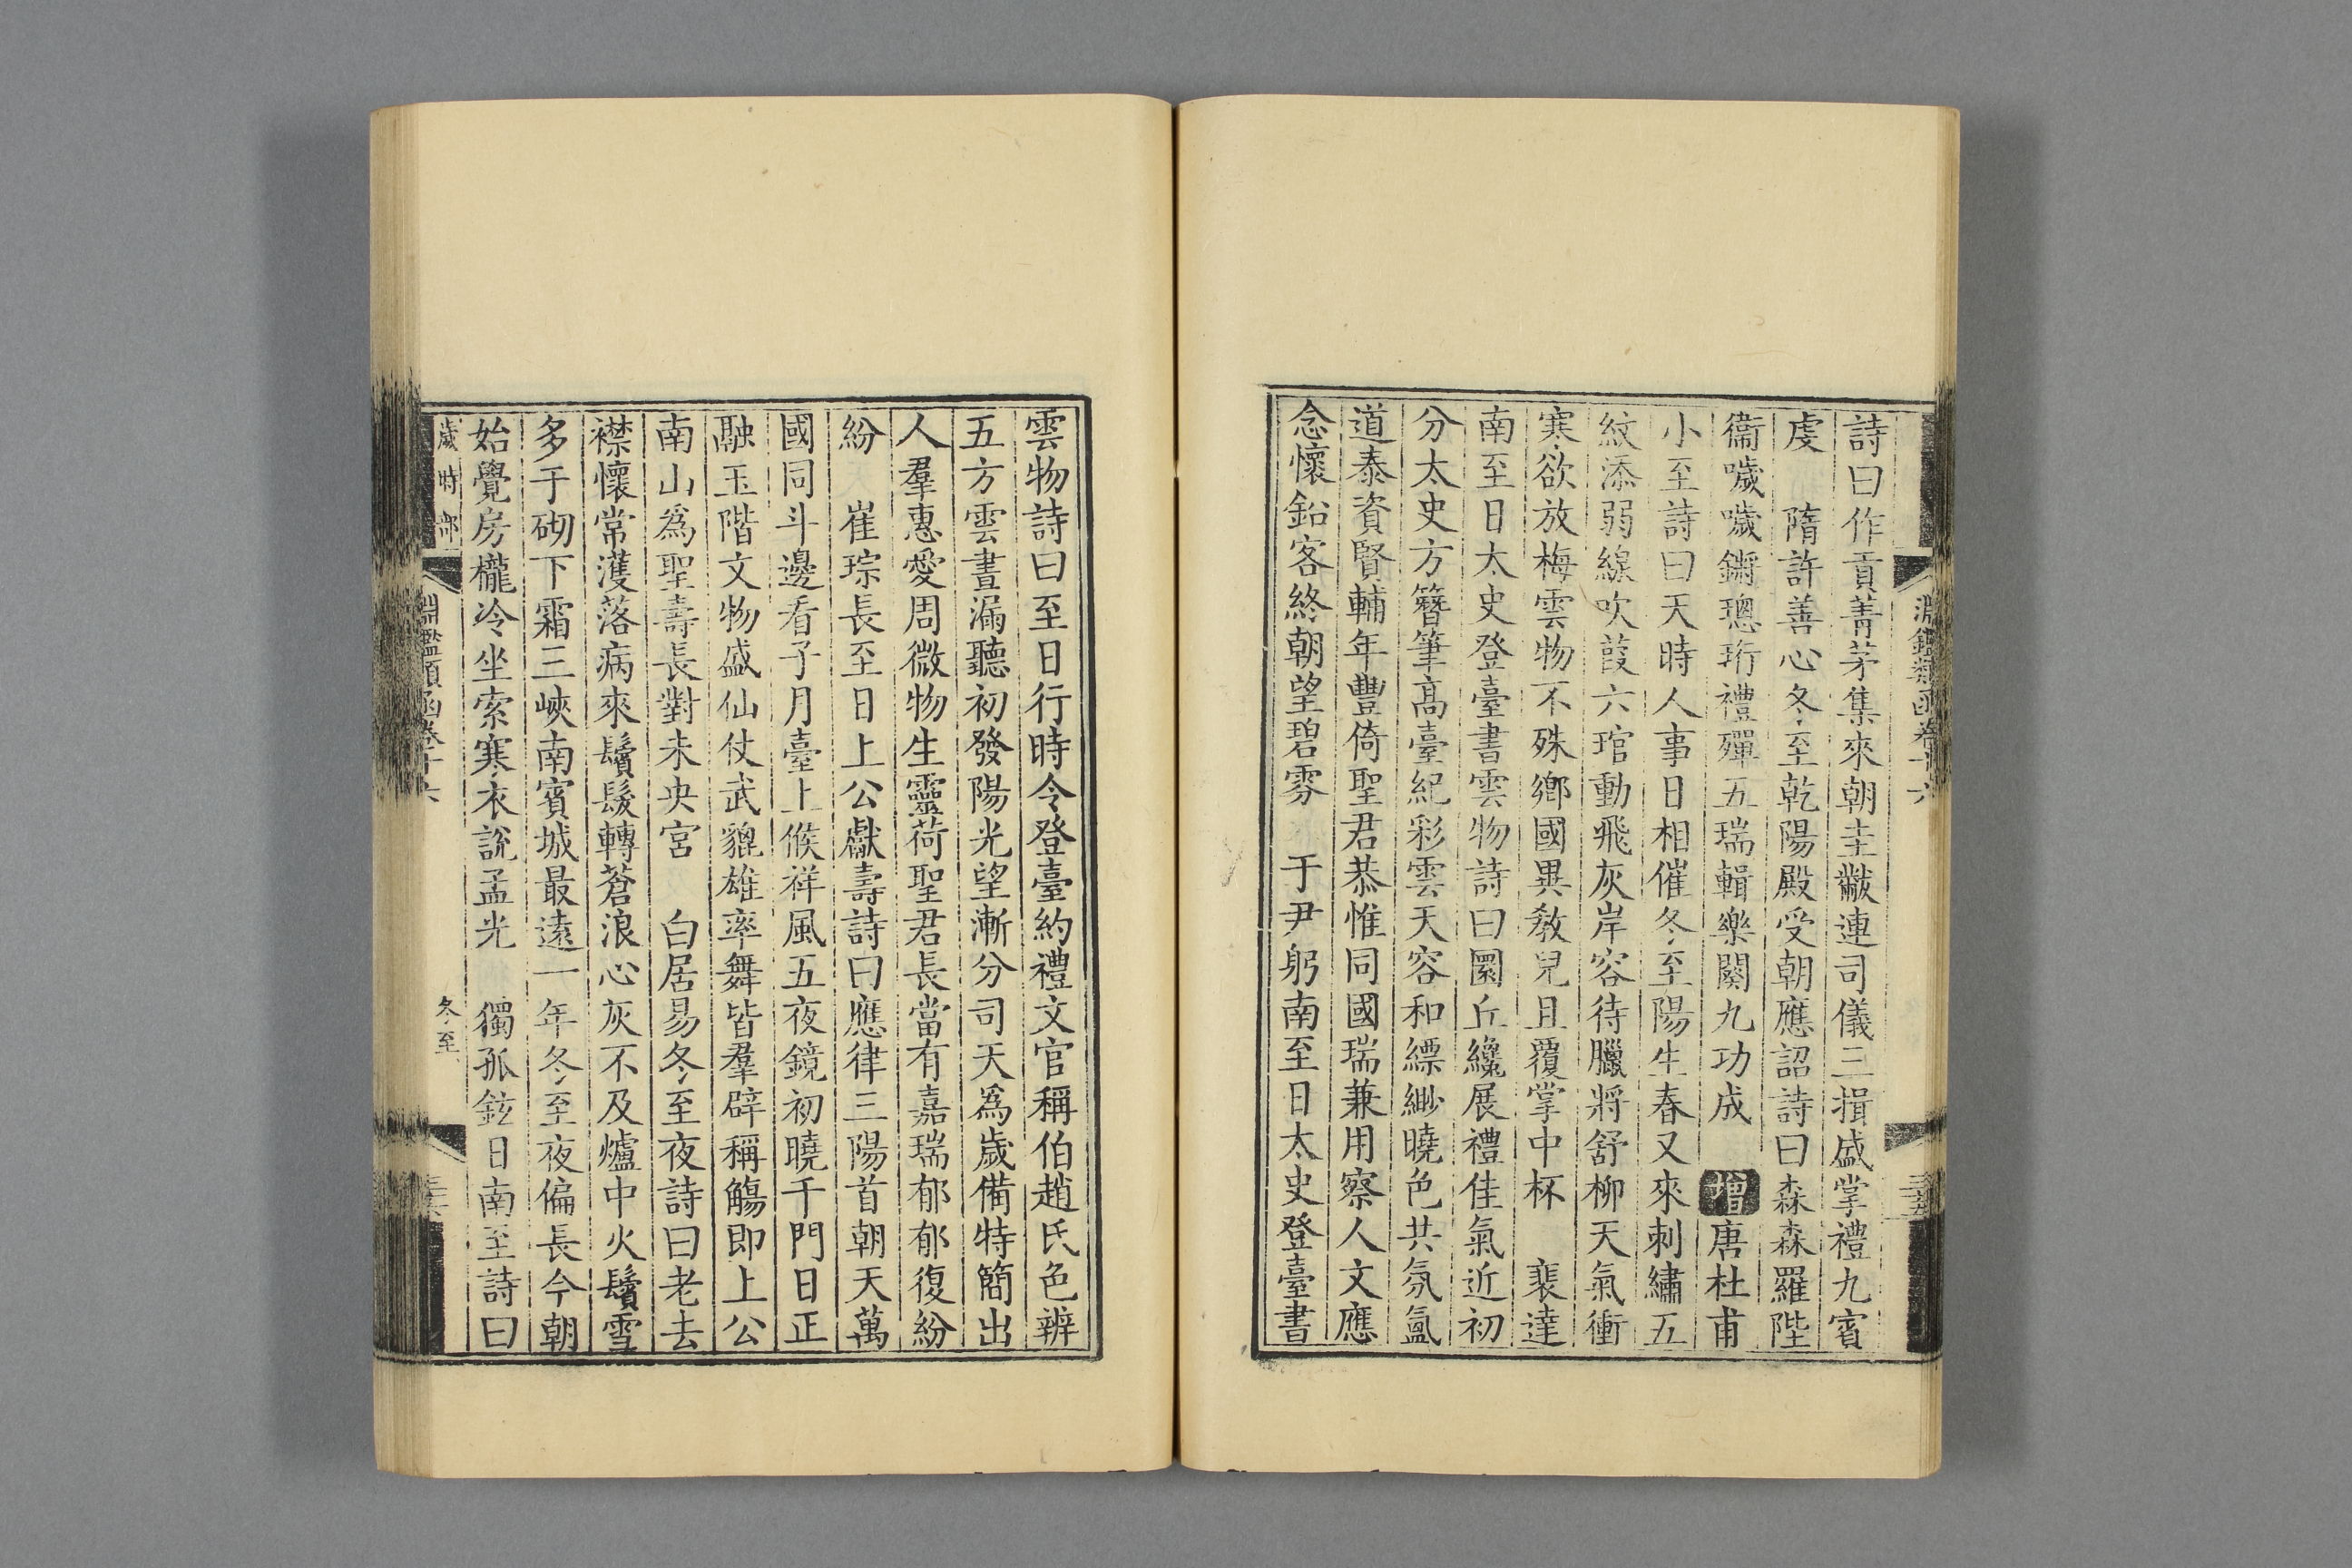 淵鑑類函卷十六
三十五
詩曰作貢菁茅集來朝圭黻連司儀三揖盛掌禮九賓
虔　隋許善心冬至乾陽殿受朝應詔詩曰森森羅陛
衞噦噦鏘璁珩禮殫五瑞輯樂闋九功成　增唐杜甫
小至詩曰天時人事日相催冬至陽生春又來刺繡五
紋添弱線吹葭六琯動飛灰岸容待臘將舒柳天氣衝
寒欲放梅雲物不殊鄉國異教兒且覆掌中杯　裴達
南至日太史登臺書雲物詩曰圜丘纔展禮佳氣近初
分太史方簪筆高臺紀彩雲天容和縹緲曉色共氛氳
道泰資賢輔年豐倚聖君恭惟同國瑞兼用察人文應
念懷鉛客終朝望碧雰　于尹躬南至日太史登臺書
雲物詩曰至日行時令登臺約禮文官稱伯趙氏色辨
五方雲晝漏聽初發陽光望漸分司天爲歲備特簡出
人羣惠愛周微物生靈荷聖君長當有嘉瑞郁郁復紛
紛　崔琮長至日上公獻壽詩曰應律三陽首朝天萬
國同斗邊看子月臺上候祥風五夜鏡初曉千門日正
融玉階文物盛仙仗武貔雄率舞皆羣辟稱觴即上公
南山爲聖壽長對未央宮　白居易冬至夜詩曰老去
襟懷常濩落病來鬚髮轉蒼浪心灰不及爐中火鬢雪
多于砌下霜三峽南賓城最遠一年冬至夜偏長今朝
始覺房櫳冷坐索寒衣說孟光　獨孤鉉日南至詩曰
歲時部
冬至
淵鑑類函卷十六